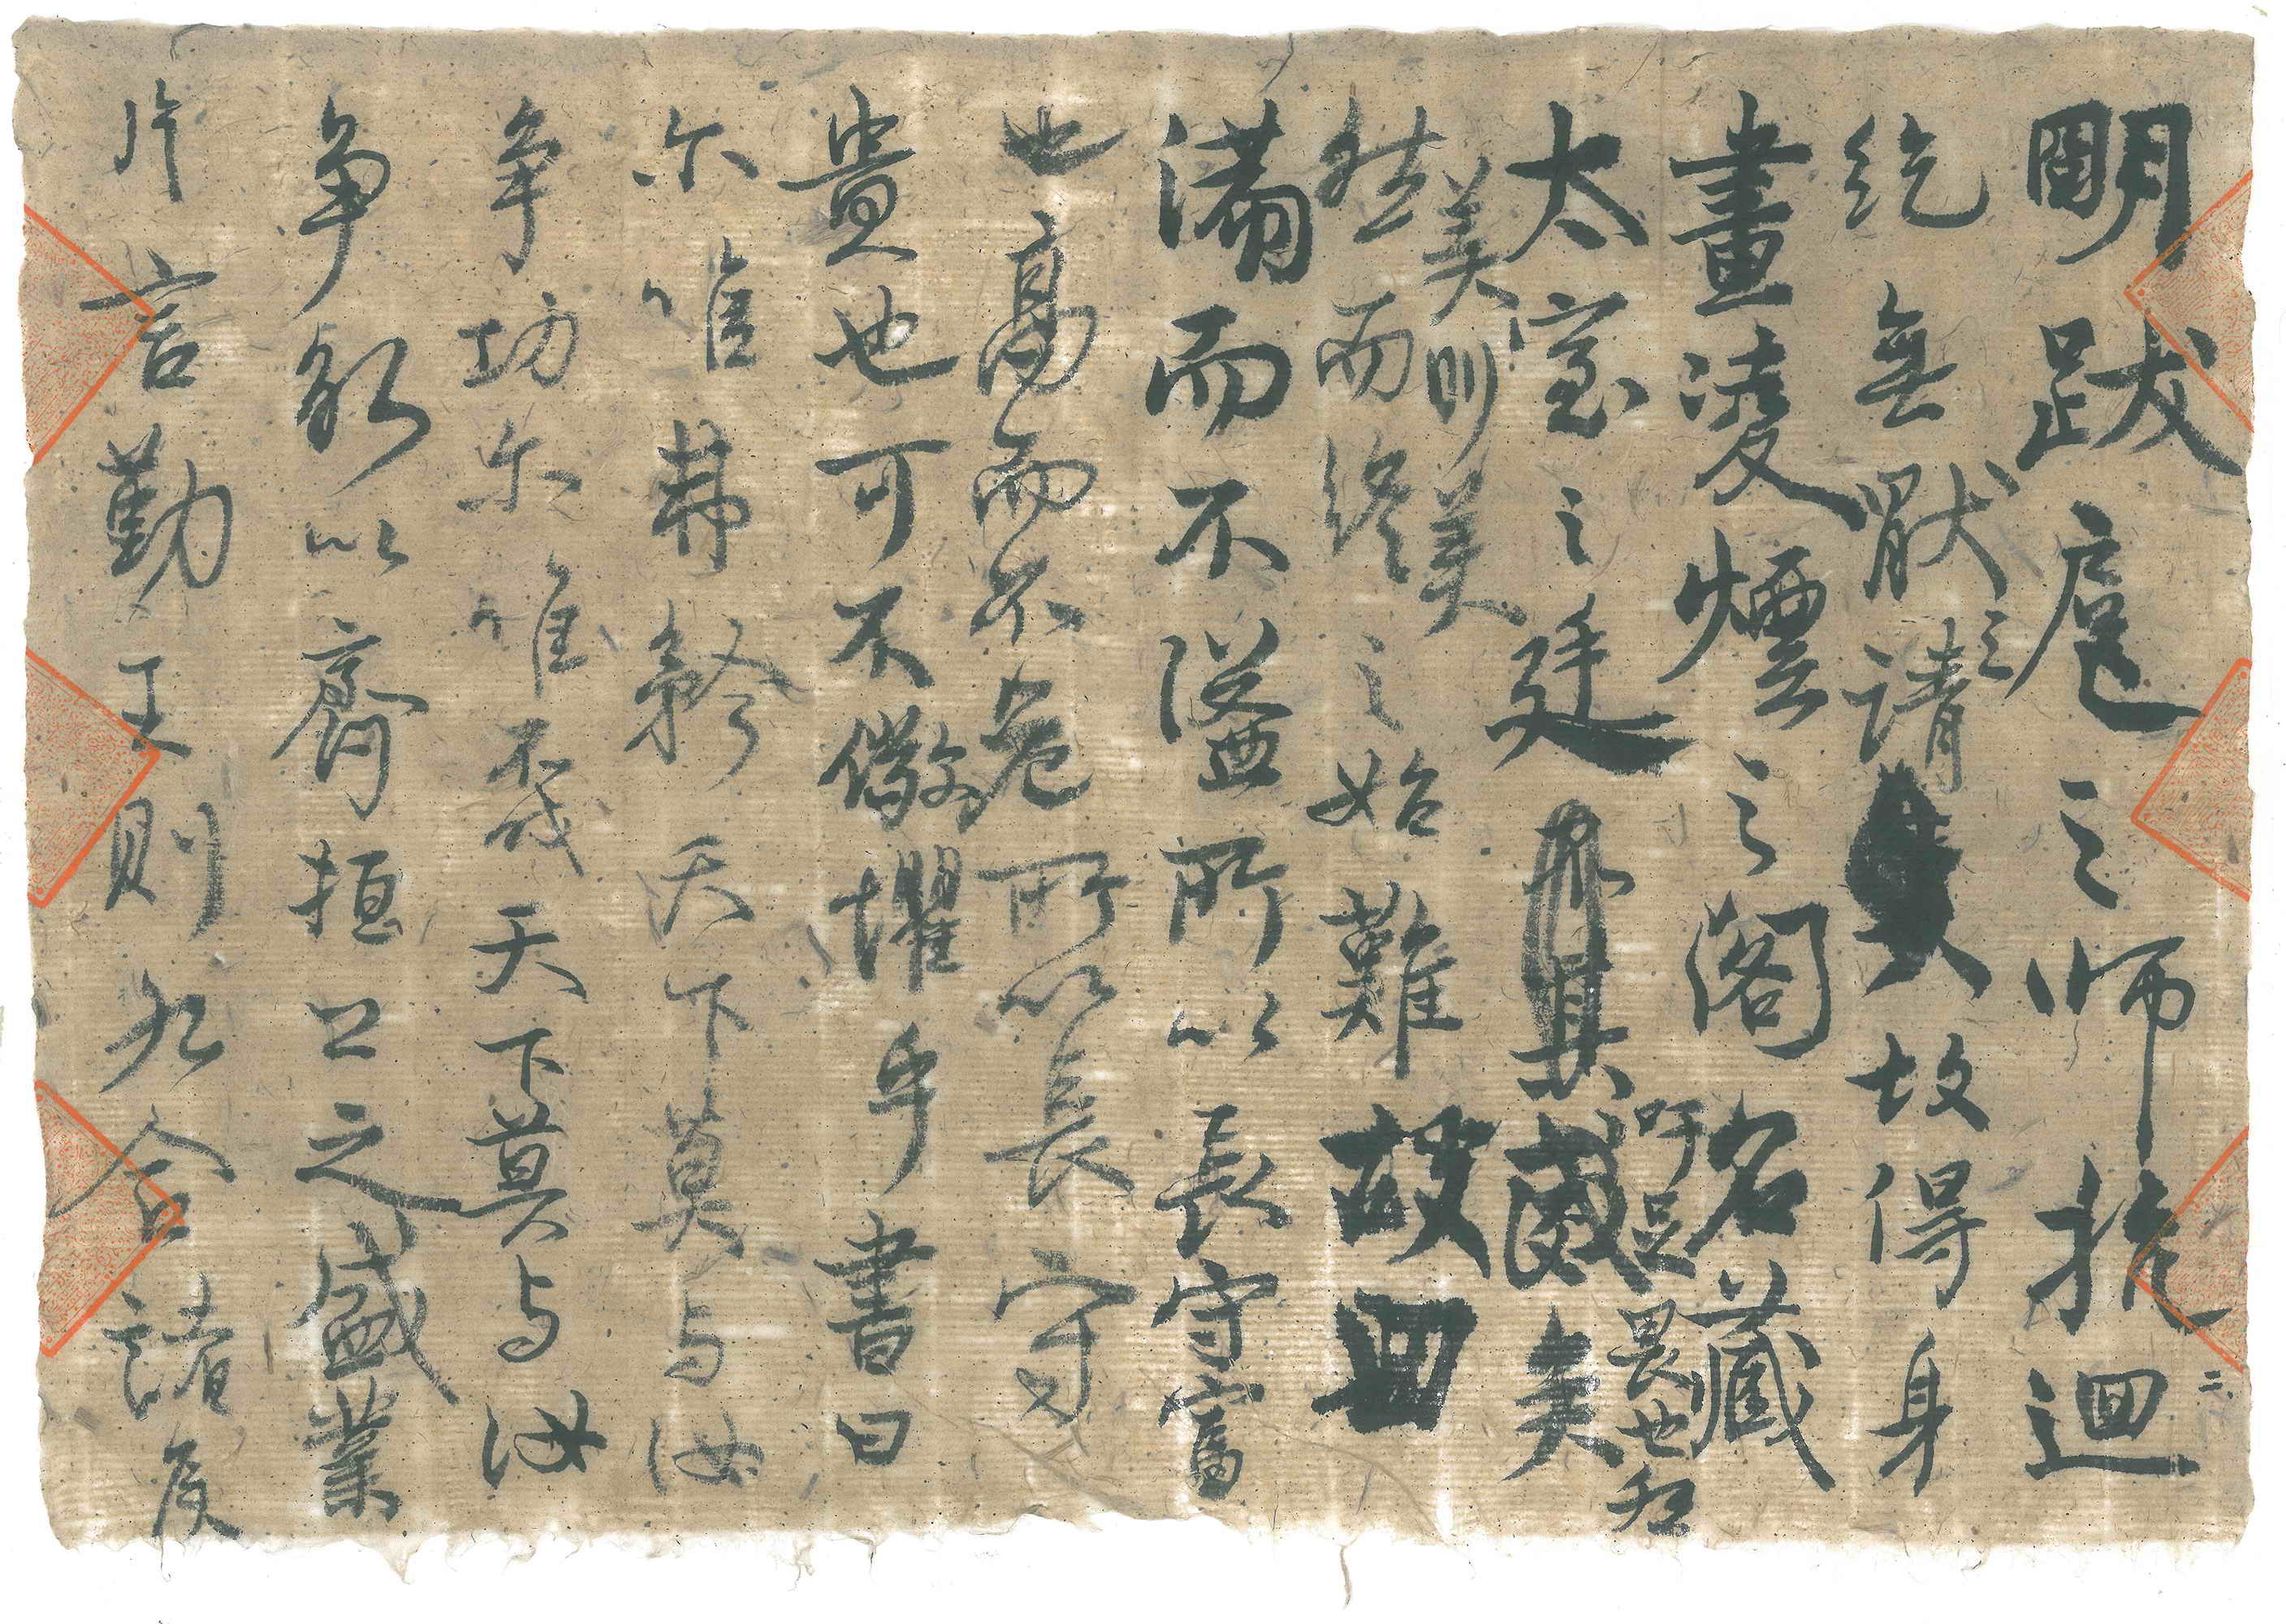 明跋扈之师抗迴
紇無厭之請故得身
畫淩煙之閣名藏
太室之廷吁足畏也
然美則美矣而終之始難故曰
滿而不溢所以長守富
也高而不危所以長守
貴也可不儆懼乎書曰
尔唯弗矜天下莫与汝
争功尔唯不伐天下莫与汝
争能以齊桓公之盛業
片言勤王則九合諸侯